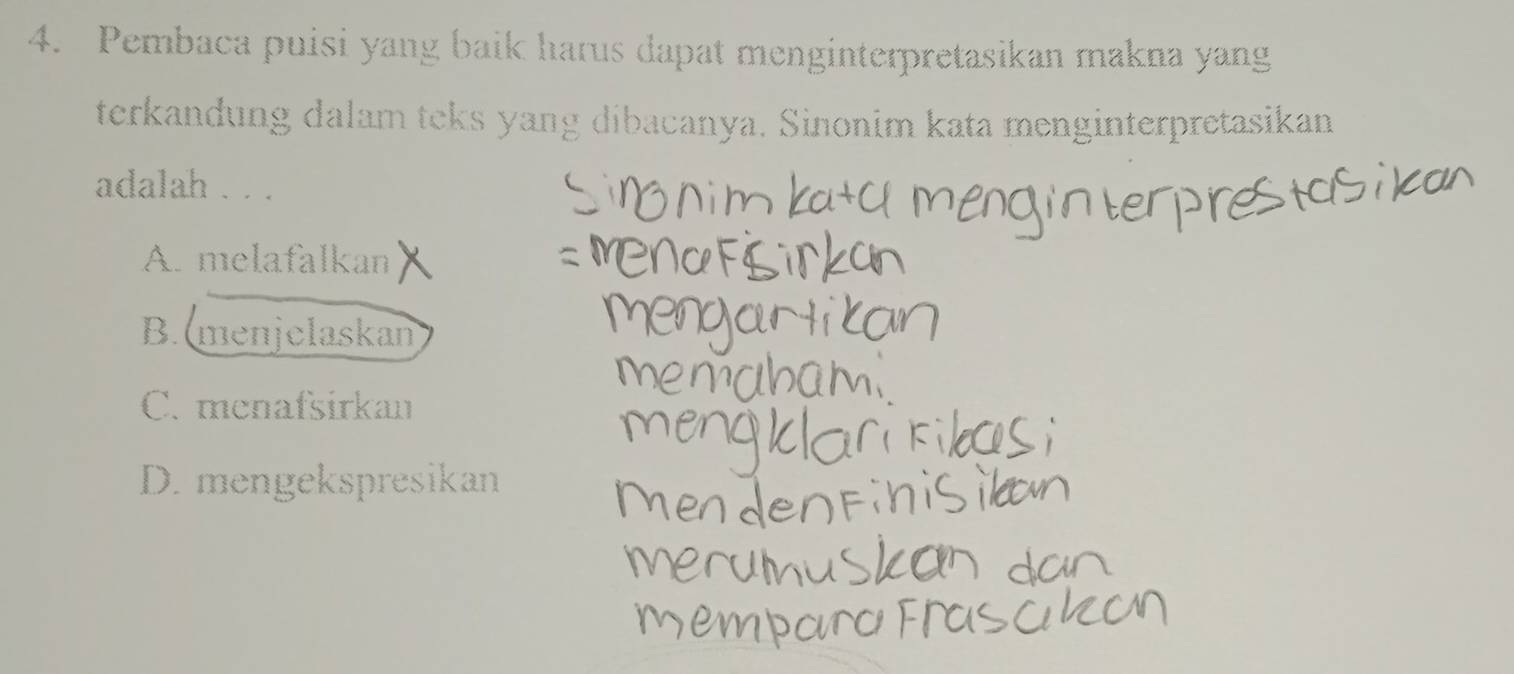 4. Pembaca puisi yang baik harus dapat menginterpretasikan makna yang
terkandung dalam teks yang dibacanya. Sinonim kata menginterpretasikan
adalah . . .
Sinonim kata menginterprestasikan
A. melafalkan X
= menafsirkan
B. menjelaskan
mengartikan
memahami
C. menafsirkan
mengklarifikasi
D. mengekspresikan
mendenfinisikan
merumuskan dan
memparafrasakan